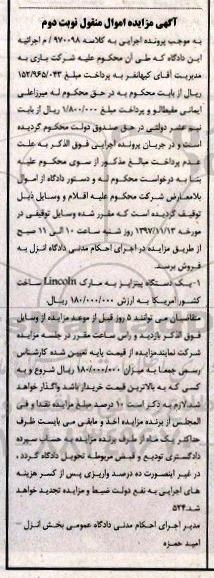 آگهی مزایده اموال منقول نوبت دوم
به موجب پرونده اجرایی به کلاسه ۹۷۰۰۹۸ / م اجرائیه
این دادگاه که طی آن محکوم علیه شرکت یاری به
مدیریت آقای کیهانفر به پرداخت مبلغ ۱۵۲/۹۶۵/۰۴۳
ریال از بابت محکوم به در حق محکوم له میرزاعلی
ایمانی مقیطالو و پرداخت مبلغ ۱/۸۰۰/۰۰۰ ریال از بابت
نیم عشر دولتی در حق صندوق دولت محکوم گردیده
است و در جریان پرونده اجرایی فوق الذکر به علت
عدم پرداخت مبالغ مذکور از سوی محکوم علیه
بنا به درخواست محکوم له و دستور دادگاه از اموال
بلامعارض شرکت محکوم علیه اقلام و وسایل ذیل
توقیف گردیده است که مقرر شده وسایل توقیفی در
مورخه ۱۳۹۷/۱۱/۱۳ روز شنبه ساعت ۱۰ الی ۱۱ صبح
از طریق مزایده در اجرای احکام مدنی دادگاه انزل به
فروش برسد.
۱-یک دستگاه دیزنایز به مارک Lincoln ساخت
کشور آمریکا به ارزش ۱۸۰/۰۰۰/۰۰۰ ریال.
متقاضیان می توانند ۵ روز قبل از موعد مزایده از وسایل
فوق الذکر بازدید و راس ساعت مقرر در جلسه مزایده
شرکت نمایند.مزایده از قیمت پایه تعیین شده کارشناس
رسمی جمعا به میزان ۱۸۰/۰۰۰/۰۰۰ ریال شروع و به
کسی که به بالاترین قیمت خریدار باشد واگذار خواهد
شد.لازم به ذکر است ۱۰ درصد مبلغ مزایده نقدا و فی
المجلس از برنده مزایده اخذ و مابقی می بایست ظرف
حداکثر یک ماه از طرف برنده مزایده به حساب سپرده
دادگستری تودیع و قبض مربوطه تحویل دادگاه گردد ،
در غیر اینصورت ده درصد واریزی پس از کسر هزینه
های اجرایی به نفع دولت ضبط و مزایده تجدید خواهد
شد.۵۲۴
مدیر اجرای احکام مدنی دادگاه عمومی بخش انزل -
امید حمزه